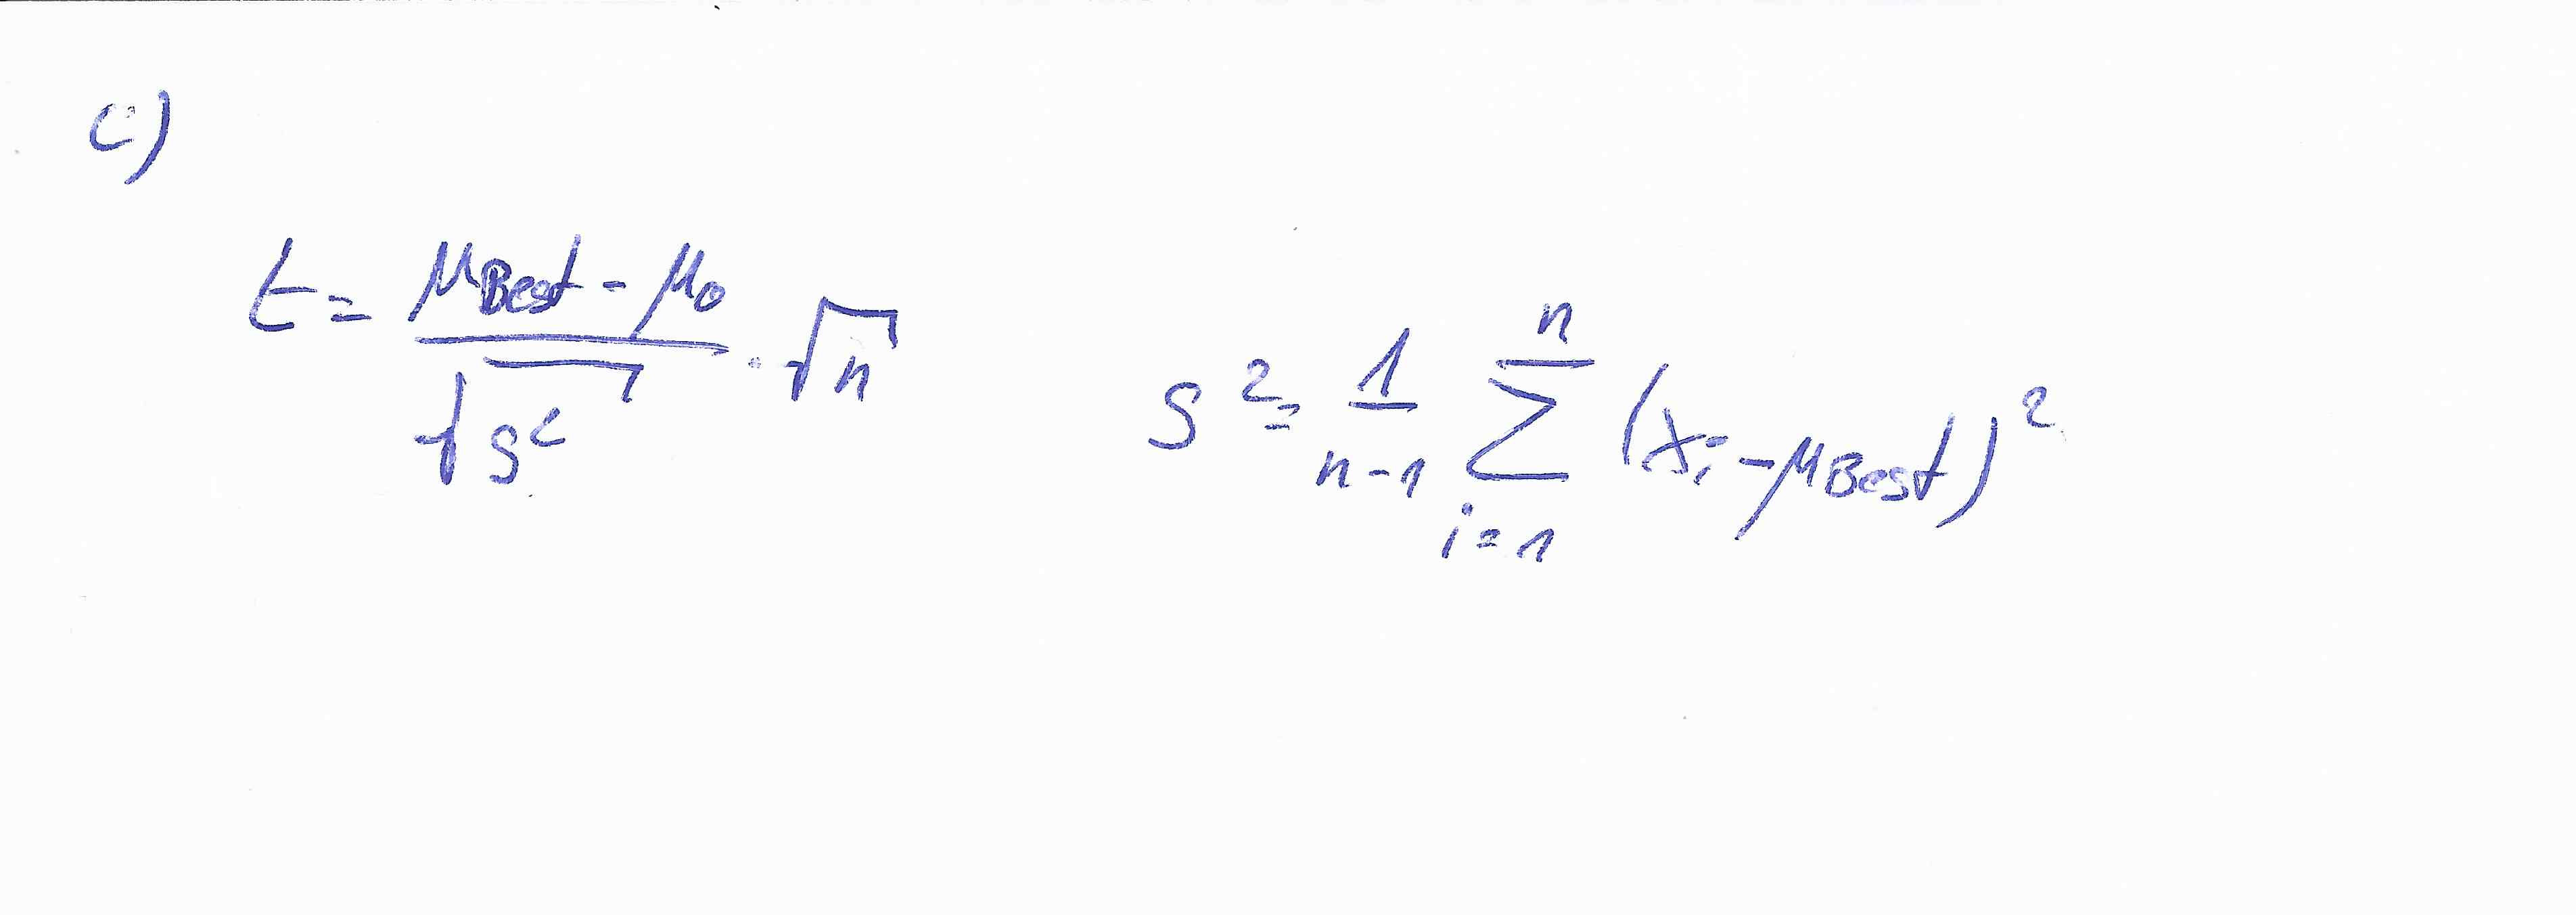 c)
t = \frac{\mu_{Best} - \mu_0}{\sqrt{s^2}} \cdot \sqrt{n}
s^2 = \frac{1}{n-1} \sum_{i=1}^{n} (x_i - \mu_{Best})^2